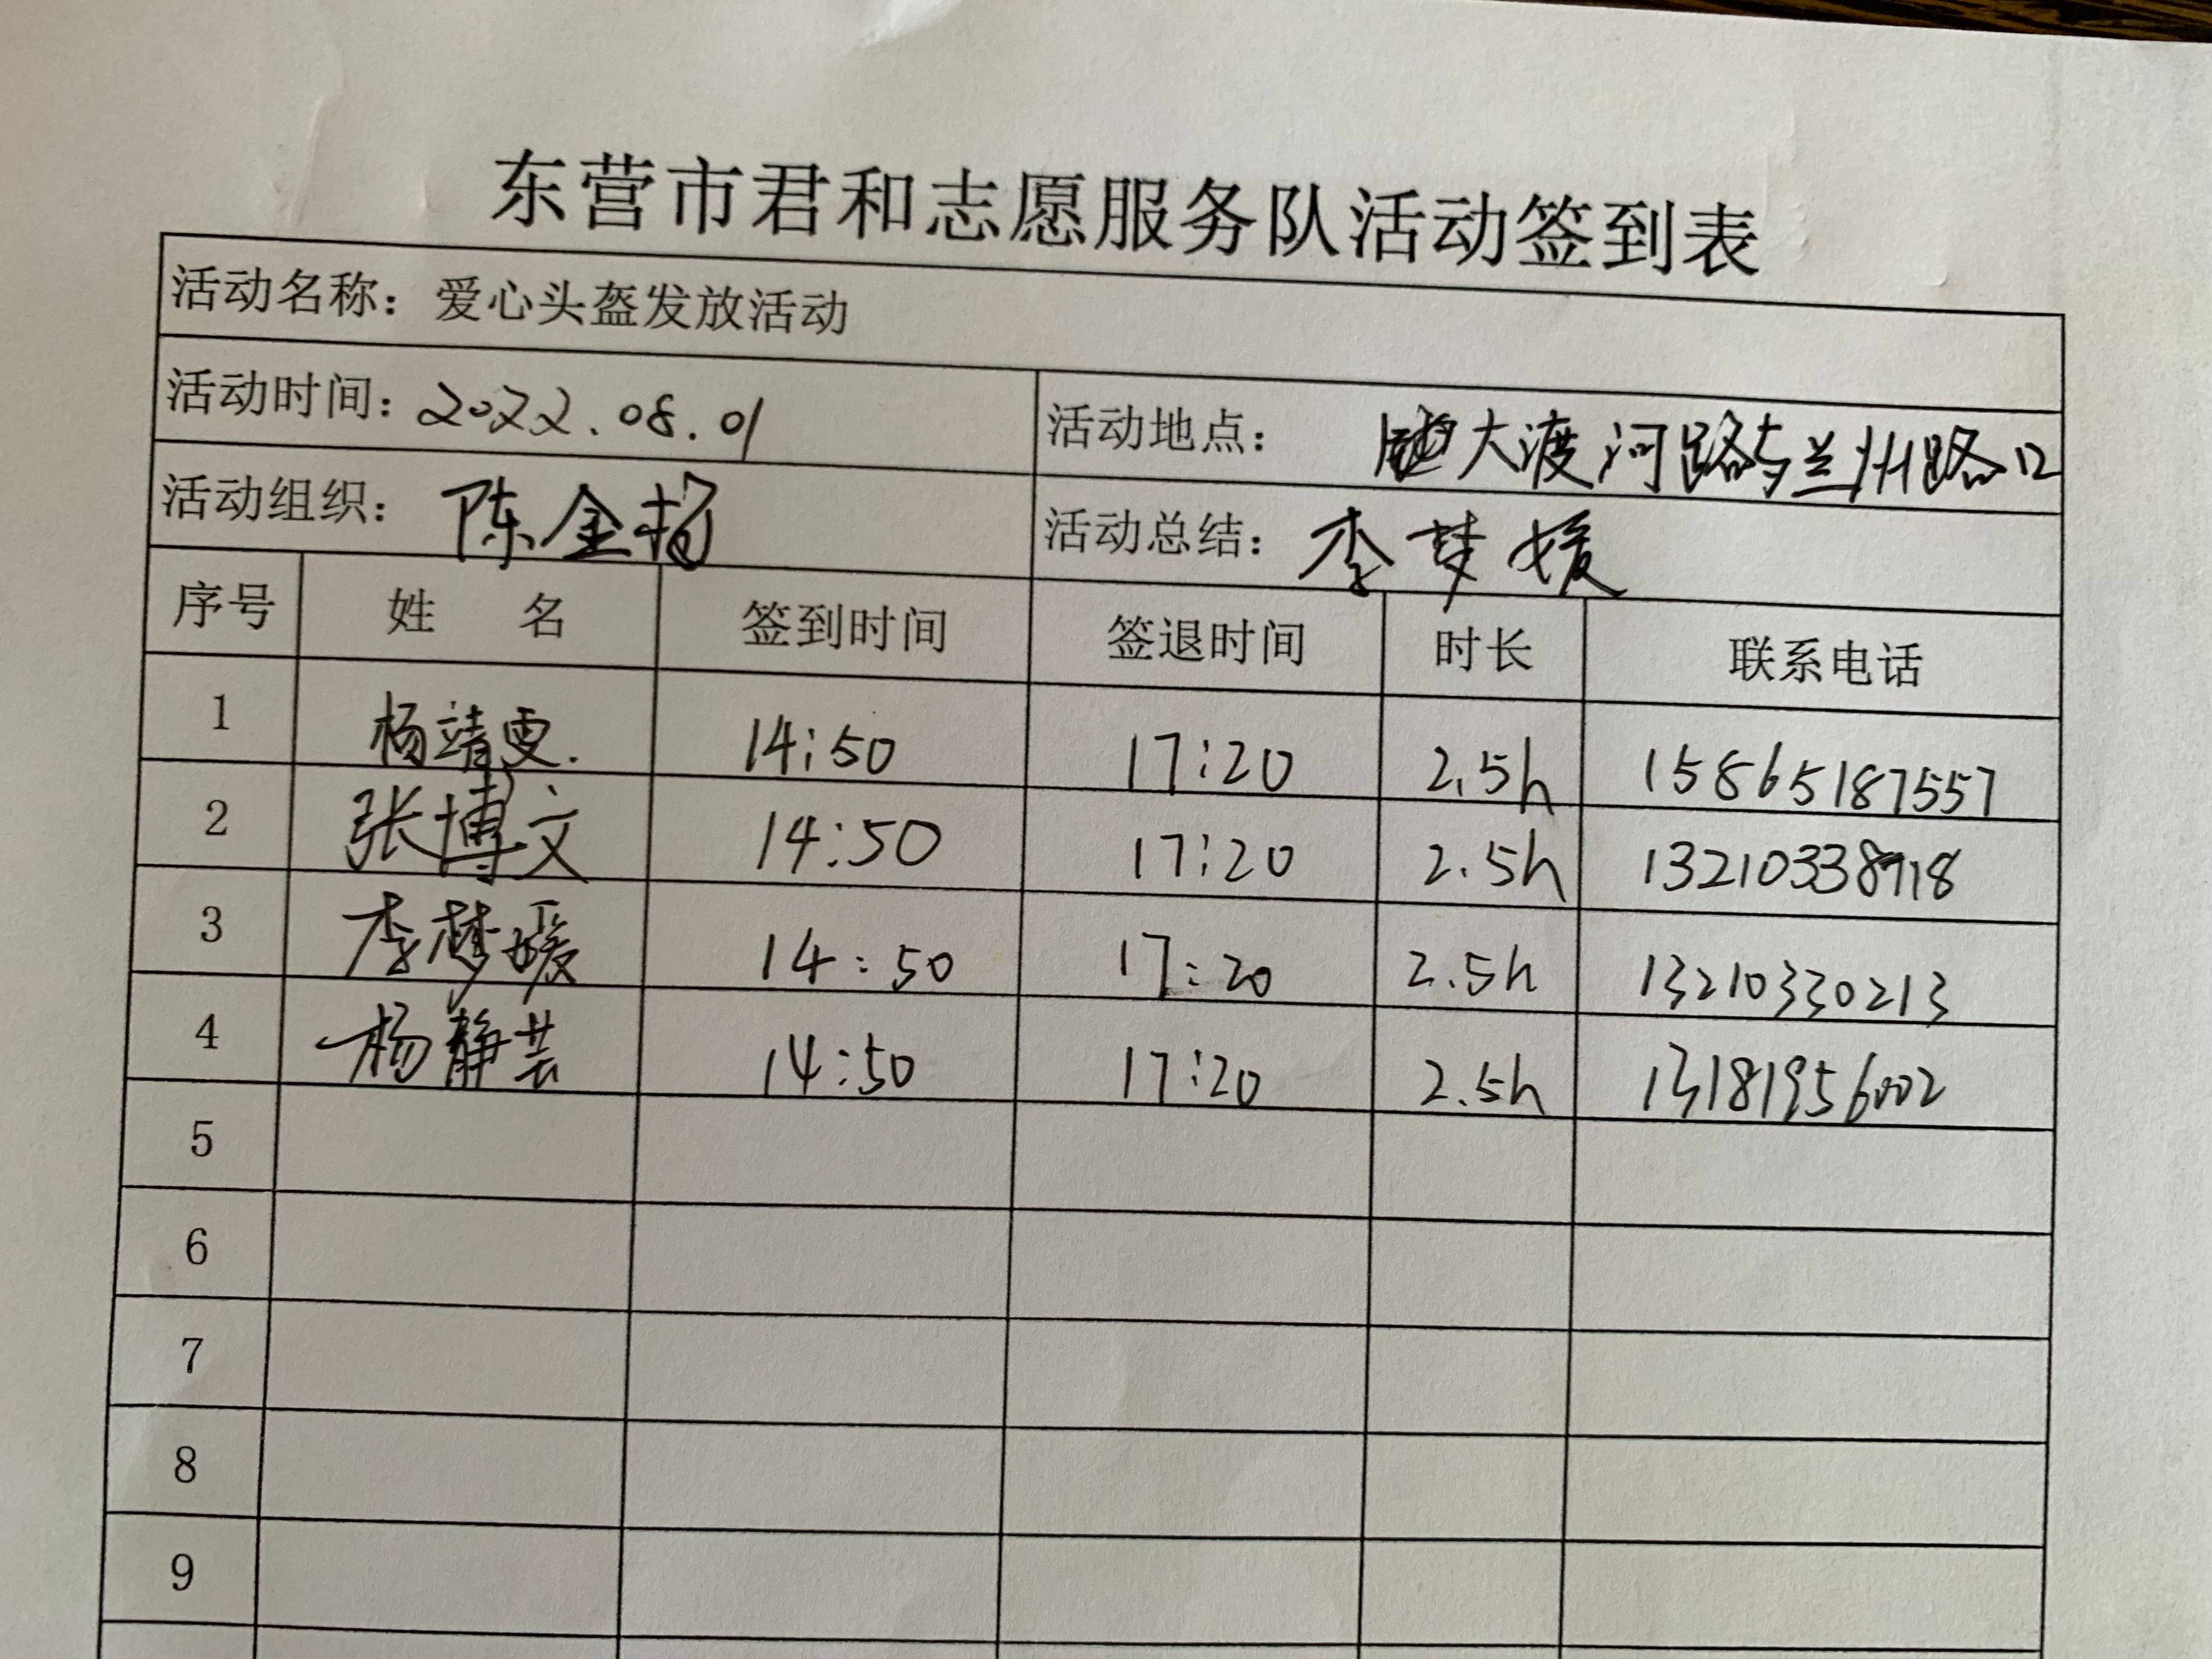 东营市君和志愿服务队活动签到表
活动名称：爱心头盔发放活动
活动时间：2022.08.01 活动地点：大渡河路与兰州路口
活动组织：陈金杨 活动总结：李梦媛
序号 姓 名 签到时间 签退时间 时长 联系电话
1 杨靖雯. 14:50 17:20 2.5h 15865187557
2 张博文 14:50 17:20 2.5h
3 李梦媛 14:50 17:20 2.5h 13210330213
4 杨静芸 14:50 17:20 2.5h 13181956002
5
6
7
8
9